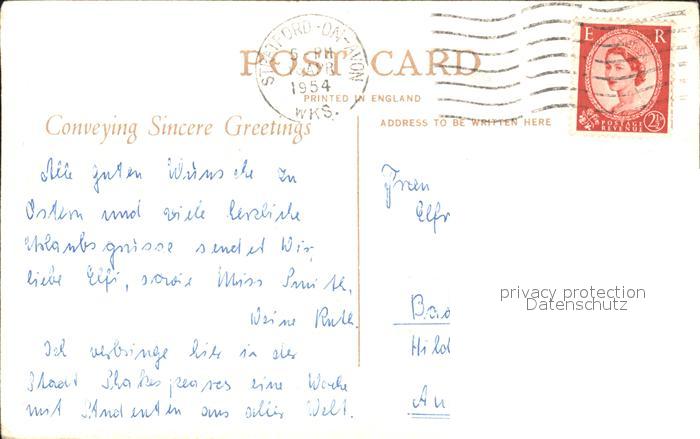 STRATFORD-ON-AVON
6-PM
APR
1954
WKS.
E R
POSTAGE
REVENUE
2½
POST CARD
PRINTED IN ENGLAND
Conveying Sincere Greetings
ADDRESS TO BE WRITTEN HERE
Alle guten Wünsche zu
Ostern und viele herzliche
Urlaubsgrüsse sendet Dir,
liebe Elfi, sowie Miss Smith,
Deine Ruth.
Ich verbringe hier in der
Stadt Shakespeares eine Woche
mit Studenten aus aller Welt.
Frau
Elfr
Bad
Hild
Au
privacy protection
Datenschutz